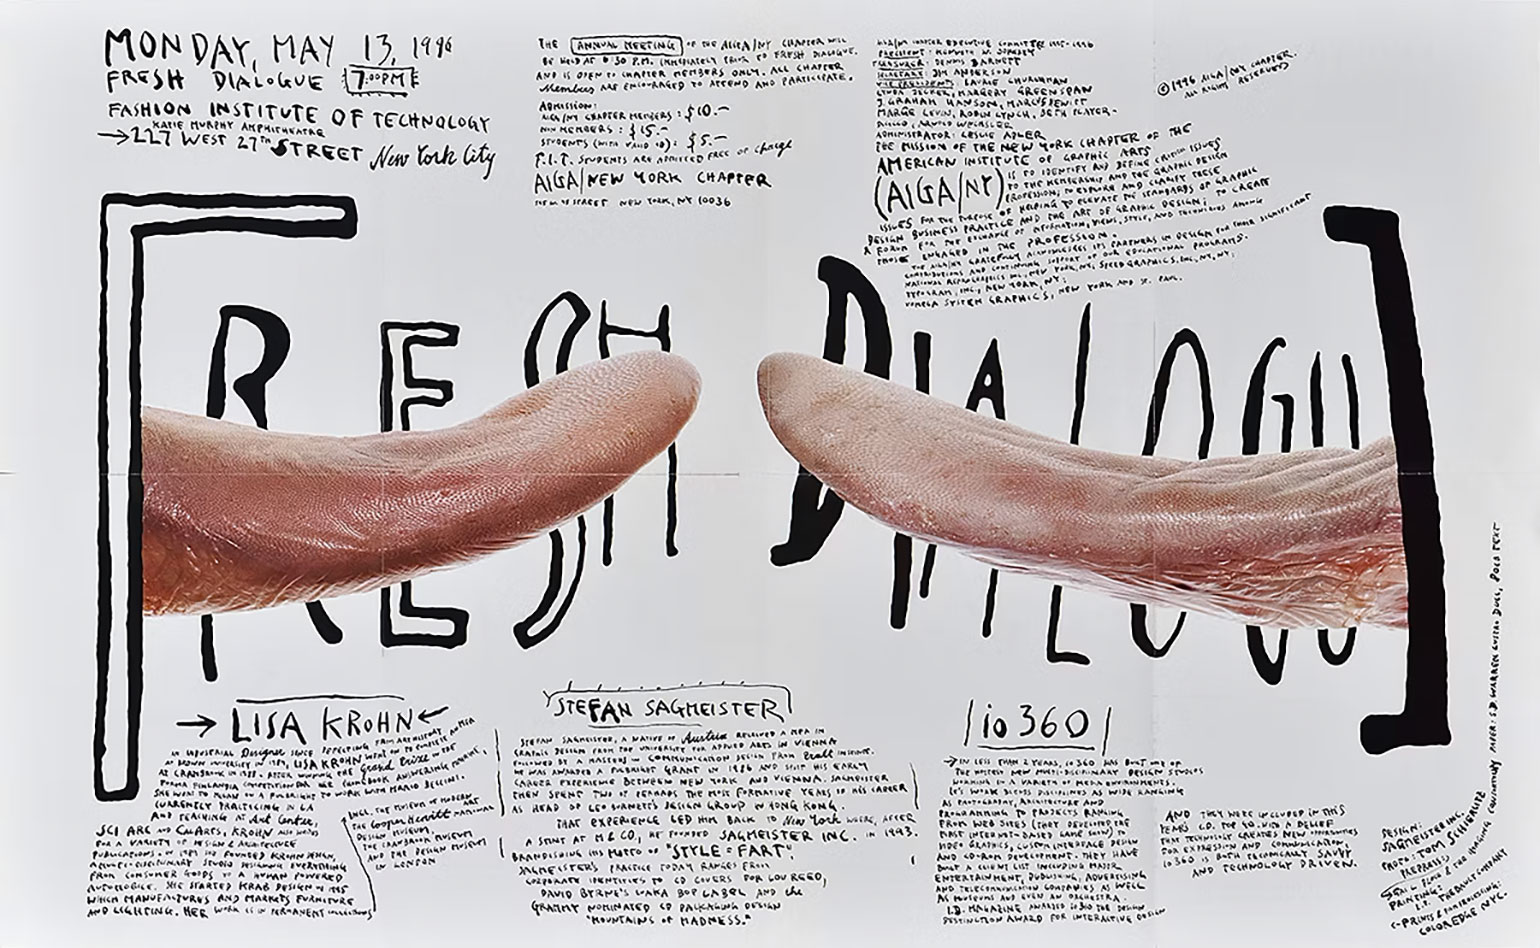 MONDAY, MAY 13, 1996
FRESH DIALOGUE 7:00PM
FASHION INSTITUTE OF TECHNOLOGY
KATIE MURPHY AMPHITHEATRE
→227 WEST 27TH STREET New York City
THE ANNUAL MEETING OF THE AIGA/NY CHAPTER WILL
BE HELD AT 6:30 P.M. IMMEDIATELY PRIOR TO FRESH DIALOGUE.
AND IS OPEN TO CHAPTER MEMBERS ONLY. ALL CHAPTER
Members ARE ENCOURAGED TO ATTEND AND PARTICIPATE.
ADMISSION:
AIGA/NY CHAPTER MEMBERS: $10.–
NON MEMBERS: $15.–
STUDENTS (WITH VALID ID): $5.–
F.I.T. STUDENTS ARE ADMITTED FREE OF charge
AIGA/NEW YORK CHAPTER
STREET NEW YORK, NY 10036
AIGA/NY CHAPTER EXECUTIVE COMMITTEE 1995-1996
PRESIDENT:
TREASURER: DENNIS BARNETT
SECRETARY: JIM ANDERSON
VICE PRESIDENTS: LAURIE CHURCHMAN
MARGERY GREENSPAN
J. GRAHAM HANSON, MARCUS HEWITT
MARGE LEVIN, ROBIN LYNCH, SETH PLAYER-
ADMINISTRATOR: LESLIE ADLER
THE MISSION OF THE NEW YORK CHAPTER OF THE
AMERICAN INSTITUTE OF GRAPHIC ARTS
(AIGA/NY) IS TO IDENTIFY AND DEFINE CRITICAL ISSUES
TO THE MEMBERSHIP AND THE GRAPHIC DESIGN
PROFESSION; TO EXPLORE AND CLARIFY THESE
ISSUES FOR THE PURPOSE OF HELPING TO ELEVATE THE STANDARDS OF GRAPHIC
DESIGN BUSINESS PRACTICE AND THE ART OF GRAPHIC DESIGN; TO CREATE
A FORUM FOR THE EXCHANGE OF INFORMATION, VIEWS, STYLE, AND TECHNIQUES AMONG
THOSE ENGAGED IN THE PROFESSION.
THE AIGA/NY GRATEFULLY ACKNOWLEDGES ITS PARTNERS IN DESIGN FOR THEIR SIGNIFICANT
CONTRIBUTIONS AND CONTINUING SUPPORT OF OUR EDUCATIONAL PROGRAMS:
NATIONAL REPROGRAPHICS INC., NEW YORK, NY; SPEED GRAPHICS, INC., NY, NY;
TYPOGRAM, INC., NEW YORK, NY;
SYSTEM GRAPHICS, NEW YORK AND ST. PAUL.
©1996 AIGA/NY CHAPTER.
ALL RIGHTS RESERVED
[FRESH DIALOGU]
→ LISA KROHN ←
AN INDUSTRIAL Designer SINCE DEFECTING FROM ART HISTORY
AT BROWN UNIVERSITY IN 1985, LISA KROHN WENT ON TO COMPLETE AN MFA
AT CRANBROOK IN 1988. AFTER WINNING THE Grand Prize IN THE
FORMA FINLANDIA COMPETITION FOR HER PHONEBOOK ANSWERING MACHINE,
SHE WENT TO MILAN ON A FULBRIGHT TO WORK WITH MARIO BELLINI.
CURRENTLY PRACTICING IN LA
AND TEACHING AT Art Center,
SCI ARC AND CALARTS, KROHN ALSO WRITES
FOR A VARIETY OF DESIGN & ARCHITECTURE
PUBLICATIONS. IN 1989 SHE FOUNDED KROHN DESIGN,
A MULTI-DISCIPLINARY STUDIO DESIGNING EVERYTHING
FROM CONSUMER GOODS TO A HUMAN POWERED
AUTOMOBILE. SHE STARTED KRAB DESIGN IN 1995
WHICH MANUFACTURES AND MARKETS FURNITURE
AND LIGHTING. HER WORK IS IN PERMANENT COLLECTIONS
INCL. THE MUSEUM OF MODERN ART
THE Cooper Hewitt NATIONAL
DESIGN MUSEUM,
THE CRANBROOK MUSEUM
AND THE DESIGN MUSEUM
IN LONDON
STEFAN SAGMEISTER
STEFAN SAGMEISTER, A NATIVE OF Austria RECEIVED A MFA IN
GRAPHIC DESIGN FROM THE UNIVERSITY FOR APPLIED ARTS IN VIENNA
FOLLOWED BY A MASTERS IN COMMUNICATION DESIGN FROM Pratt INSTITUTE.
HE WAS AWARDED A FULBRIGHT GRANT IN 1986 AND SPLIT HIS EARLY
CAREER EXPERIENCE BETWEEN NEW YORK AND VIENNA. SAGMEISTER
THEN SPENT TWO OF PERHAPS THE MOST FORMATIVE YEARS IN HIS CAREER
AS HEAD OF LEO BURNETT'S DESIGN GROUP IN HONG KONG.
THAT EXPERIENCE LED HIM BACK TO New York WHERE, AFTER
A STINT AT M&CO, HE FOUNDED SAGMEISTER INC. IN 1993.
BRANDISHING HIS MOTTO OF "STYLE=FART",
SAGMEISTER'S PRACTICE TODAY RANGES FROM
CORPORATE IDENTITIES TO CD COVERS FOR LOU REED,
DAVID BYRNE'S LUAKA BOP LABEL AND the
GRAMMY NOMINATED CD PACKAGING DESIGN
"MOUNTAINS OF MADNESS."
|io360|
→IN LESS THAN 2 YEARS, io360 HAS BUILT ONE OF
THE HOTTEST NEW MULTI-DISCIPLINARY DESIGN STUDIOS
WORKING IN A VARIETY OF MEDIA ENVIRONMENTS.
WORK BLENDS DISCIPLINES AS WIDE RANGING
AS PHOTOGRAPHY, ARCHITECTURE AND
PROGRAMMING TO PROJECTS RANGING
FROM WEB SITES (THEY DEVELOPED THE
FIRST INTERNET-BASED GAME SHOW) TO
VIDEO GRAPHICS, CUSTOM INTERFACE DESIGN
AND CD-ROM DEVELOPMENT. THEY HAVE
BUILT A CLIENT LIST INCLUDING MAJOR
ENTERTAINMENT, PUBLISHING, ADVERTISING
AND TELECOMMUNICATION COMPANIES AS WELL
AS MUSEUMS AND EVEN AN ORCHESTRA.
I.D. MAGAZINE AWARDED io360 THE DESIGN
DISTINCTION AWARD FOR INTERACTIVE DESIGN
AND THEY WERE INCLUDED IN THIS
YEARS I.D. TOP 40. WITH A BELIEF
THAT TECHNOLOGY CREATES NEW OPPORTUNITIES
FOR EXPRESSION AND COMMUNICATION,
io360 IS BOTH TECHNICALLY SAVVY
AND TECHNOLOGY DRIVEN.
DESIGN:
SAGMEISTER INC.,
PHOTO: TOM SCHIERLITZ
PREPRESS
PRINTING:
C-PRINTS & RETOUCHING:
COLOR EDGE NYC.
PAPER: S.D. WARREN LUSTRO DULL, 80LB TEXT